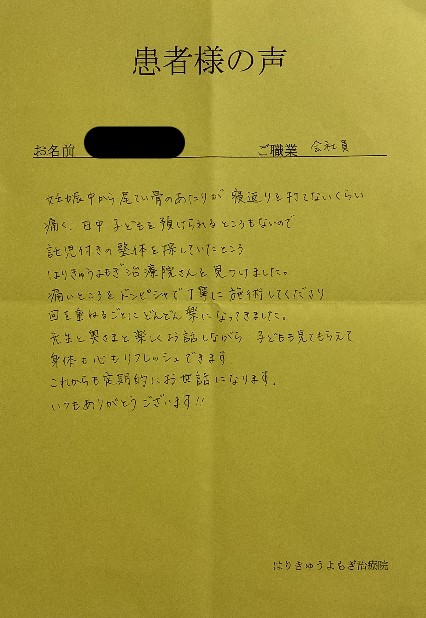 患者様の声
お名前 ご職業 会社員
妊娠中から尾てい骨のあたりが 寝返りを打てないくらい
痛く、日中 子どもを預けられるところもないので
託児付きの整体を探していたところ
はりきゅうよもぎ治療院さんを見つけました。
痛いところをドンピシャで丁寧に施術してくださり
回を重ねるごとにどんどん楽になってきました。
先生と奥さまと楽しくお話しながら 子どもも見てもらえて
身体も心もリフレッシュできます
これからも定期的にお世話になります。
いつもありがとうございます!!
はりきゅうよもぎ治療院